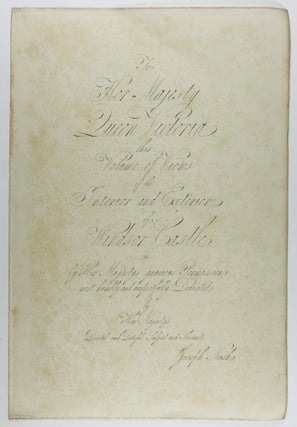 To
Her Majesty
Queen Victoria
this
Volume of Views
of the
Interior and Exterior
of
Windsor Castle
is
by Her Majesty's gracious Permission
most humbly and respectfully Dedicated
by
Her Majesty's
Devoted and Dutiful Subject and Servant
Joseph Nash